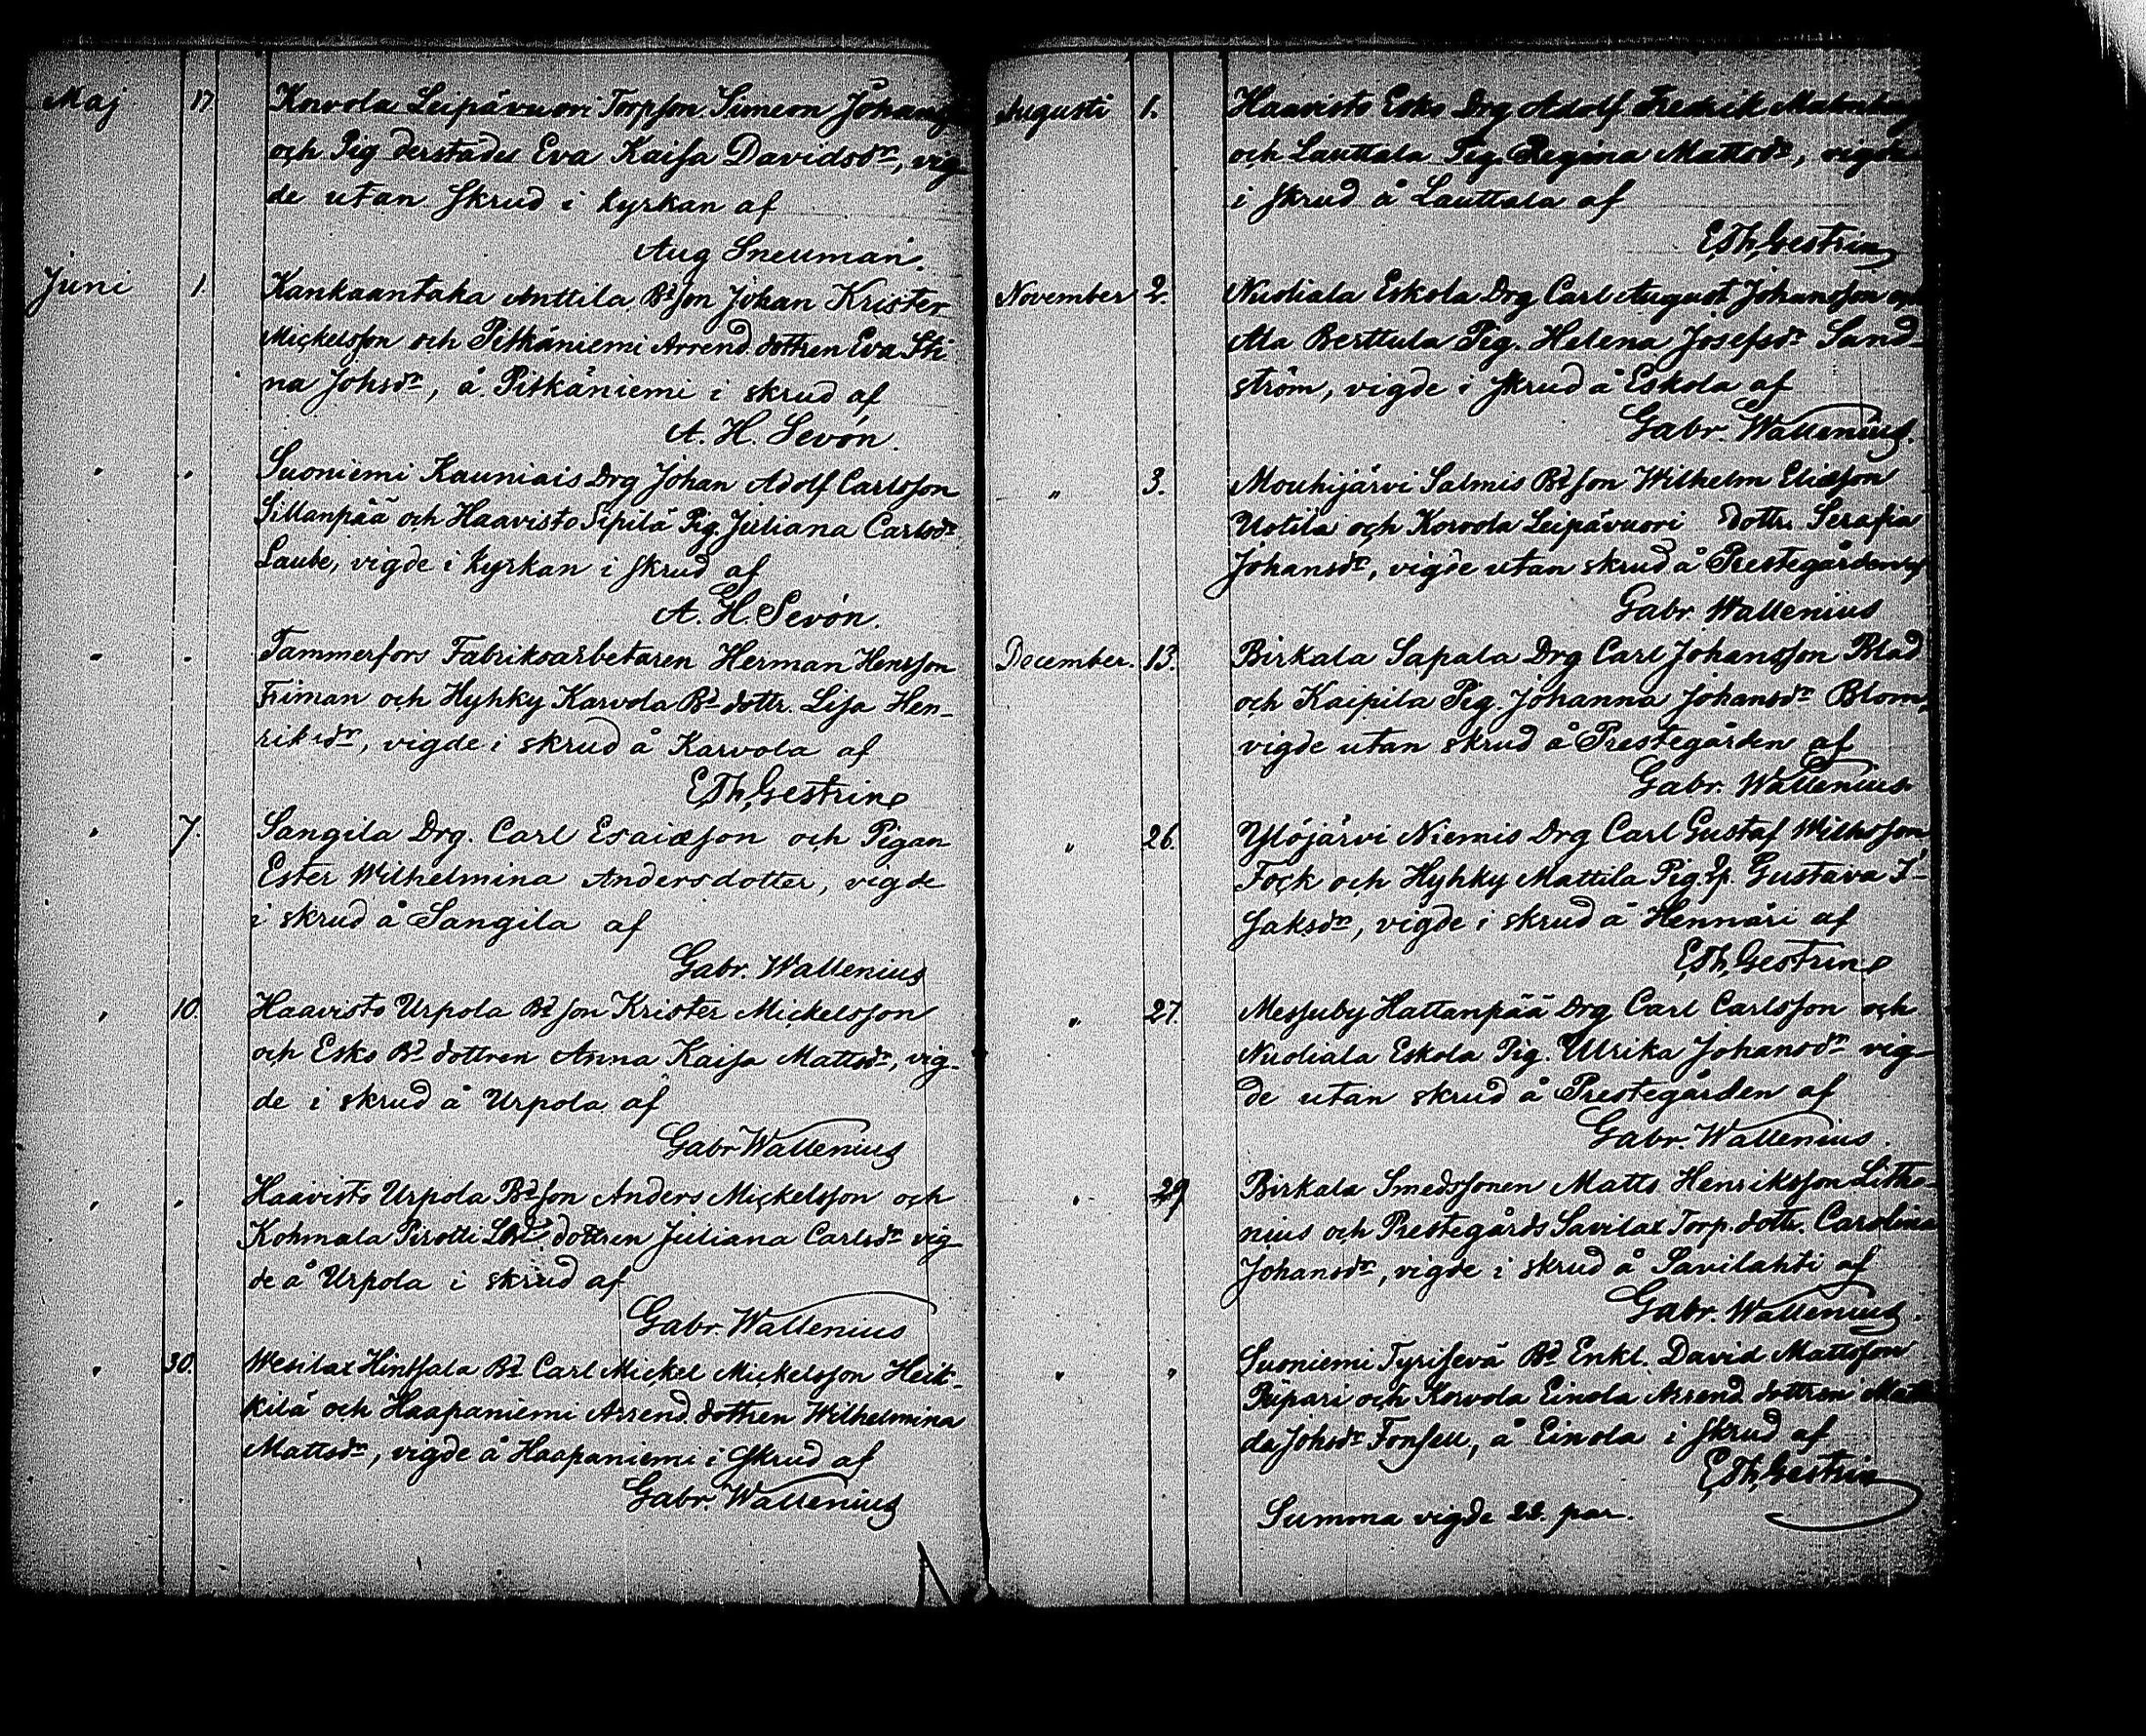 Maj 17. Korvola Leipävuori Torpson Simeon Johans
och Pig derstädes Eva Kaisa Davidsdr, vig
de utan skrud i kyrkan af
Aug Sneuman.
Juni 1. Kankaantaka Anttila Bdson Johan Krister
Mickelsson och Pitkäniemi Arrend. dottren Eva Sti
na Johsdr, å Pitkäniemi i skrud af
A. H. Sevón.
" " Suoniemi Kauniais Drg Johan Adolf Carlsson
Sillanpää och Haavisto Sipilä Pig. Juliana Carlsdr
Laube, vigde i kyrkan i skrud af
A. H. Sevón.
" " Tammerfors Fabriksarbetaren Herman Henrsson
Friman och Hyhky Karvola Bd dottr. Lisa Hen-
riksdr, vigde i skrud å Karvola af
E. Th. Gestrin
" 7. Sangila Drg. Carl Esaiæson och Pigan
Ester Wilhelmina Andersdotter, vigde
i skrud å Sangila af
Gabr. Wallenius
" 10. Haavisto Urpola Bd son Krister Mickelsson
och Esko Bd dottren Anna Kaisa Mattsdr, vig-
de i skrud å Urpola af
Gabr Wallenius
" " Haavisto Urpola Bdson Anders Mickelsson och
Kohmala Pirotti dottren Juliana Carlsdr vig
de å Urpola i skrud af
Gabr. Wallenius
" 30. Wesilax Hinsala Bd Carl Mickel Mickelsson Heik-
kilä och Haapaniemi Arrend. dottren Wilhelmina
Mattsdr, vigde å Haapaniemi i skrud af
Gabr. Wallenius
Augusti 1. Haavisto Esko Drg Adolf Fredrik Malmberg
och Lauttala Pig. Regina Mattsdr, vigde
i skrud å Lauttala af
E. Th. Gestrin
November 2. Nuoliala Eskola Drg Carl August Johansson och
Ala Berttula Pig. Helena Josefsdr Sand-
ström, vigde i skrud å Eskola af
Gabr. Wallenius.
" 3. Mouhijärvi Salmis Bd son Wilhelm Eliæson
Uotila och Korvola Leipävuori dottr. Serafia
Johansdr, vigde utan skrud å Prestegården af
Gabr. Wallenius
December. 13. Birkala Sapala Drg Carl Johansson Blad
och Kaipila Pig. Johanna Johansdr Blom,
vigde utan skrud å Prestegården af
Gabr. Wallenius
" 26. Ylöjärvi Niemis Drg Carl Gustaf Wilhsson
Fock och Hyhky Mattila Pig. Gustava I-
saksdr, vigde i skrud å Hennäri af
E. Th. Gestrin
" 27. Messuby Hattanpää Drg Carl Carlsson och
Nuoliala Eskola Pig. Ulrika Johansdr vig-
de utan skrud å Prestegården af
Gabr. Wallenius.
" 29 Birkala Smedssonen Matts Henriksson Lithe-
nius och Prestegårds Savilax Torp. dottr. Carolina
Johansdr, vigde i skrud å Savilahti af
Gabr. Wallenius.
" " Suoniemi Tyrisevä Bd Enkl. David Mattsson
Pispari och Korvola Einola Arrend dottren Mathil
da Johsdr Fonsell, å Einola i skrud af
E. Th. Gestrin
Summa vigde 22. par.